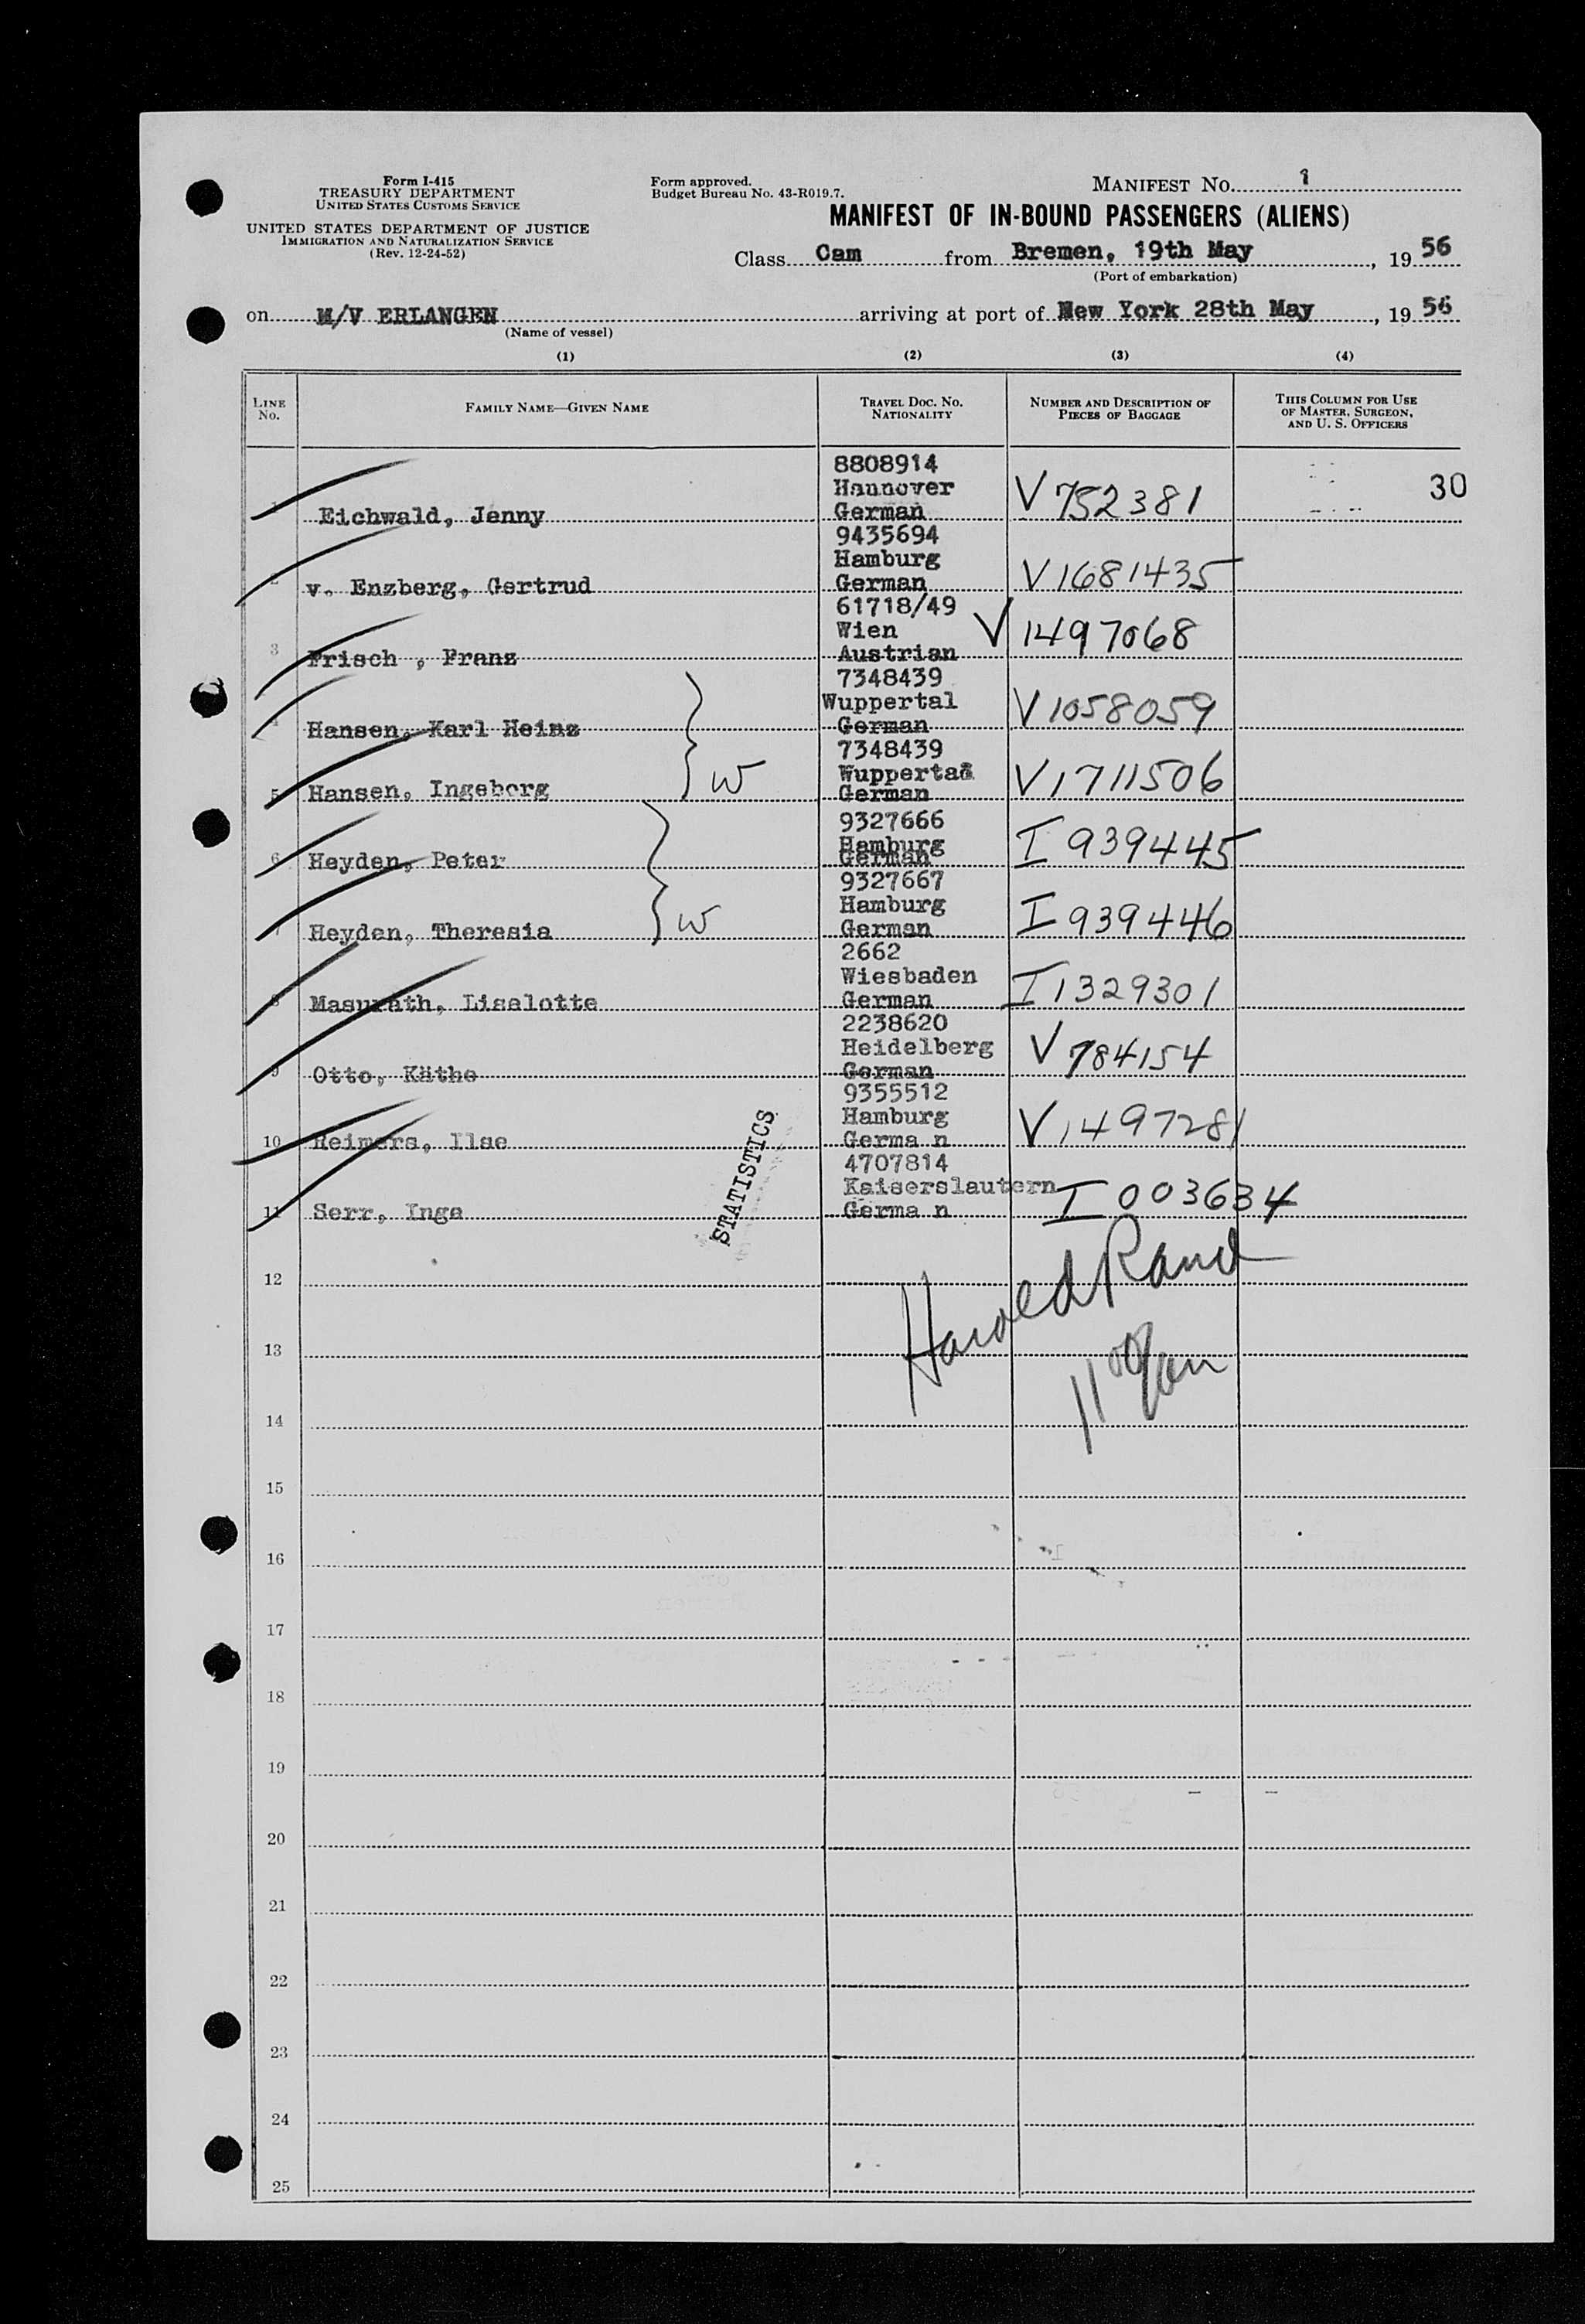 Form I-415
TREASURY DEPARTMENT
UNITED STATES CUSTOMS SERVICE
UNITED STATES DEPARTMENT OF JUSTICE
IMMIGRATION AND NATURALIZATION SERVICE
(Rev. 12-24-52)
Form approved.
Budget Bureau No. 43-R019.7.
MANIFEST NO. 1
MANIFEST OF IN-BOUND PASSENGERS (ALIENS)
Class Cam from Bremen, 19th May, 19 56
(Port of embarkation)
on M/V ERLANGEN arriving at port of New York 28th May, 19 56
(Name of vessel)
(1) (2) (3) (4)
LINE No. FAMILY NAME—GIVEN NAME TRAVEL DOC. NO. NATIONALITY NUMBER AND DESCRIPTION OF PIECES OF BAGGAGE THIS COLUMN FOR USE OF MASTER, SURGEON, AND U. S. OFFICERS
8808914
Hannover
1 Eichwald, Jenny German V752381 30
9435694
Hamburg
2 v. Enzberg, Gertrud German V1681435
61718/49
Wien
3 Frisch , Franz Austrian V1497068
7348439
Wuppertal
4 Hansen, Karl Heinz German V1058059
7348439
Wuppertal
5 Hansen, Ingeborg W German V1711506
9327666
Hamburg
6 Heyden, Peter German I939445
9327667
Hamburg
7 Heyden, Theresia W German I939446
2662
Wiesbaden
8 Masurath, Liselotte German I1329301
2238620
Heidelberg
9 Otto, Käthe German V784154
9355512
Hamburg
10 Reimers, Ilse Germa n V1497281
4707814
Kaiserslautern
11 Serr, Inge Germa n I003634
STATISTICS
Harold Rand
12
13
14
15
16
17
18
19
20
21
22
23
24
25